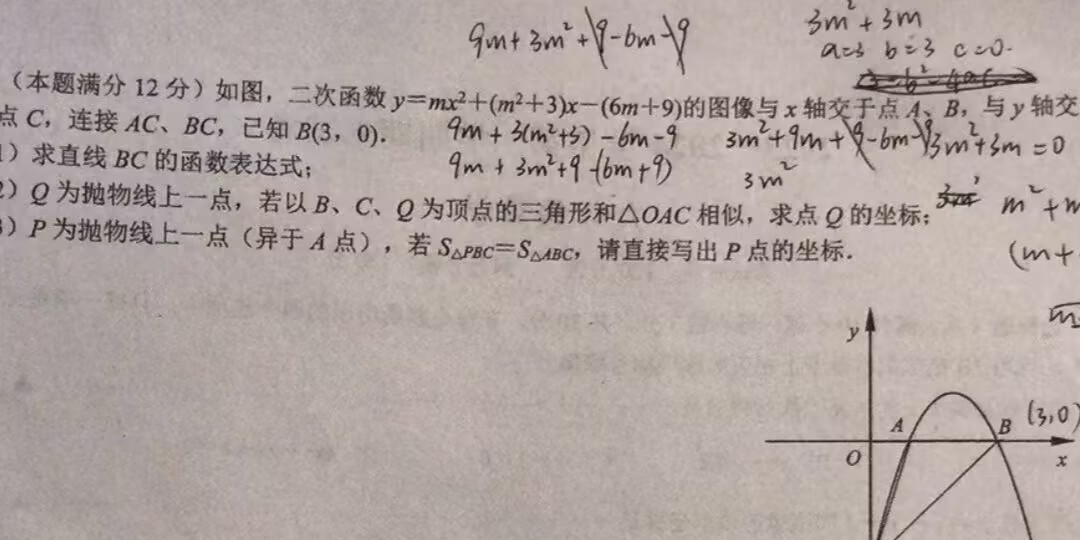 9m+3m²+9-6m-9
3m²+3m
a=3 b=3 c=0.
(本题满分 12 分) 如图，二次函数 y=mx²+(m²+3)x-(6m+9)的图像与 x 轴交于点 A、B，与 y 轴交
点 C，连接 AC、BC，已知 B(3，0).
9m+3(m²+3)-6m-9
3m²+9m+9-6m-9
3m²+3m=0
)求直线 BC 的函数表达式；
9m+3m²+9-(6m+9)
3m²
)Q 为抛物线上一点，若以 B、C、Q 为顶点的三角形和△OAC 相似，求点 Q 的坐标；
m²+m
)P 为抛物线上一点（异于 A 点），若 S△PBC=S△ABC，请直接写出 P 点的坐标.
(m+
m
y
A
B
(3,0)
O
x